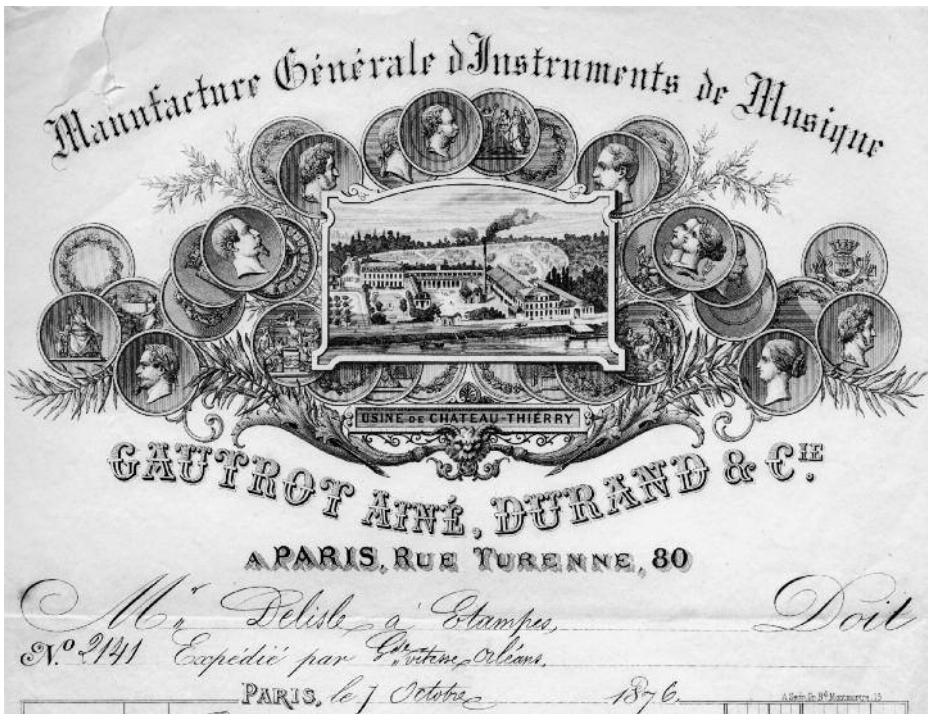 Manufacture Générale d'Instruments de Musique
USINE DE CHATEAU-THIÉRRY
GAUTROT AINÉ, DURAND & CIE.
A PARIS, RUE TURENNE, 80
Mr Delisle à Etampes, Doit
No. 2141 Expédié par Gde vitesse Orléans.
PARIS, le 7 Octobre 1876